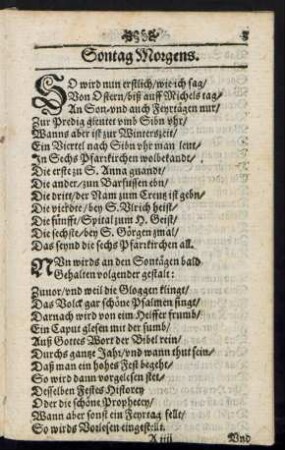 Sontag Morgens.
SO wird nun erstlich/wie ich sag/
Von Ostern/biß auff Michels tag/
An Son/vnd auch Feyrtägen nur/
Zur Predig gleutet vmb Sibn vhr/
Wanns aber ist zur Winterszeit/
Ein Viertel nach Sibn vhr man leut/
In Sechs Pfarrkirchen wolbekandt/
Die erste zu S. Anna gnandt/
Die ander/zun Barfussen ebn/
Die dritt/der Nam zum Creutz ist gebn/
Die vierdte/bey S. Vlrich heist/
Die fünfft/Spital zum H. Geist/
Die sechste/bey S. Görgen zmal/
Das seynd die sechs Pfarrkirchen all.
NVn wirds an den Sontägen bald
Gehalten volgender gestalt:
Zuuor/vnd weil die Gloggen klingt/
Das Volck gar schöne Psalmen singt/
Darnach wird von eim Helffer frumb/
Ein Caput glesen mit der sumb/
Auß Gottes Wort der Bibel rein/
Durchs gantze Jahr/vnd wann thut sein/
Daß man ein hohes Fest begeht/
So wird dann vorgelesen stet/
Desselben Festes Historey
Oder die schöne Prophecey/
Wann aber sonst ein Feyrtag fellt/
So wirds Vorlesen eingestellt.
A iiij Vnd